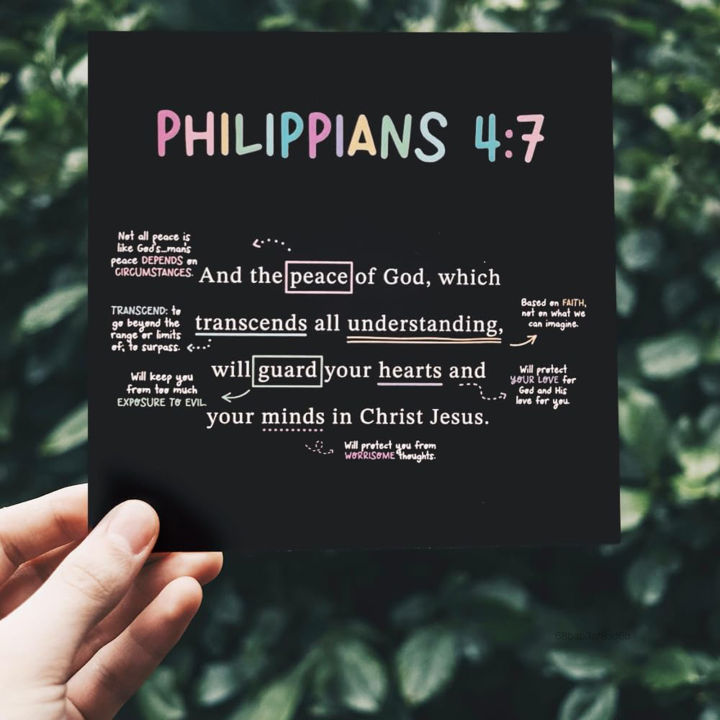 PHILIPPIANS 4:7
Not all peace is
like God's...man's
peace DEPENDS on
CIRCUMSTANCES.
And the peace of God, which
TRANSCEND: to
go beyond the
range or limits
of; to surpass.
transcends all understanding,
Based on FAITH,
not on what we
can imagine.
Will keep you
from too much
EXPOSURE TO EVIL.
will guard your hearts and
Will protect
YOUR LOVE for
God and His
love for you.
your minds in Christ Jesus.
Will protect you from
WORRISOME thoughts.